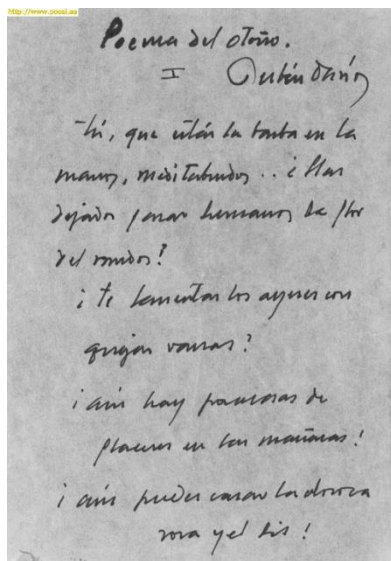 http://www.cocsi.es
Poema del otoño.
I Rubén Darío
Tú, que estás la barba en la
mano, meditabundo.. ¿Has
dejado pasar hermano, la flor
del mundo?
¿Te lamentas los ayeres con
quejas vanas?
¡aún hay promesas de
placeres en las mañanas!
¡aún puedes casar la olorosa
rosa y el lis!